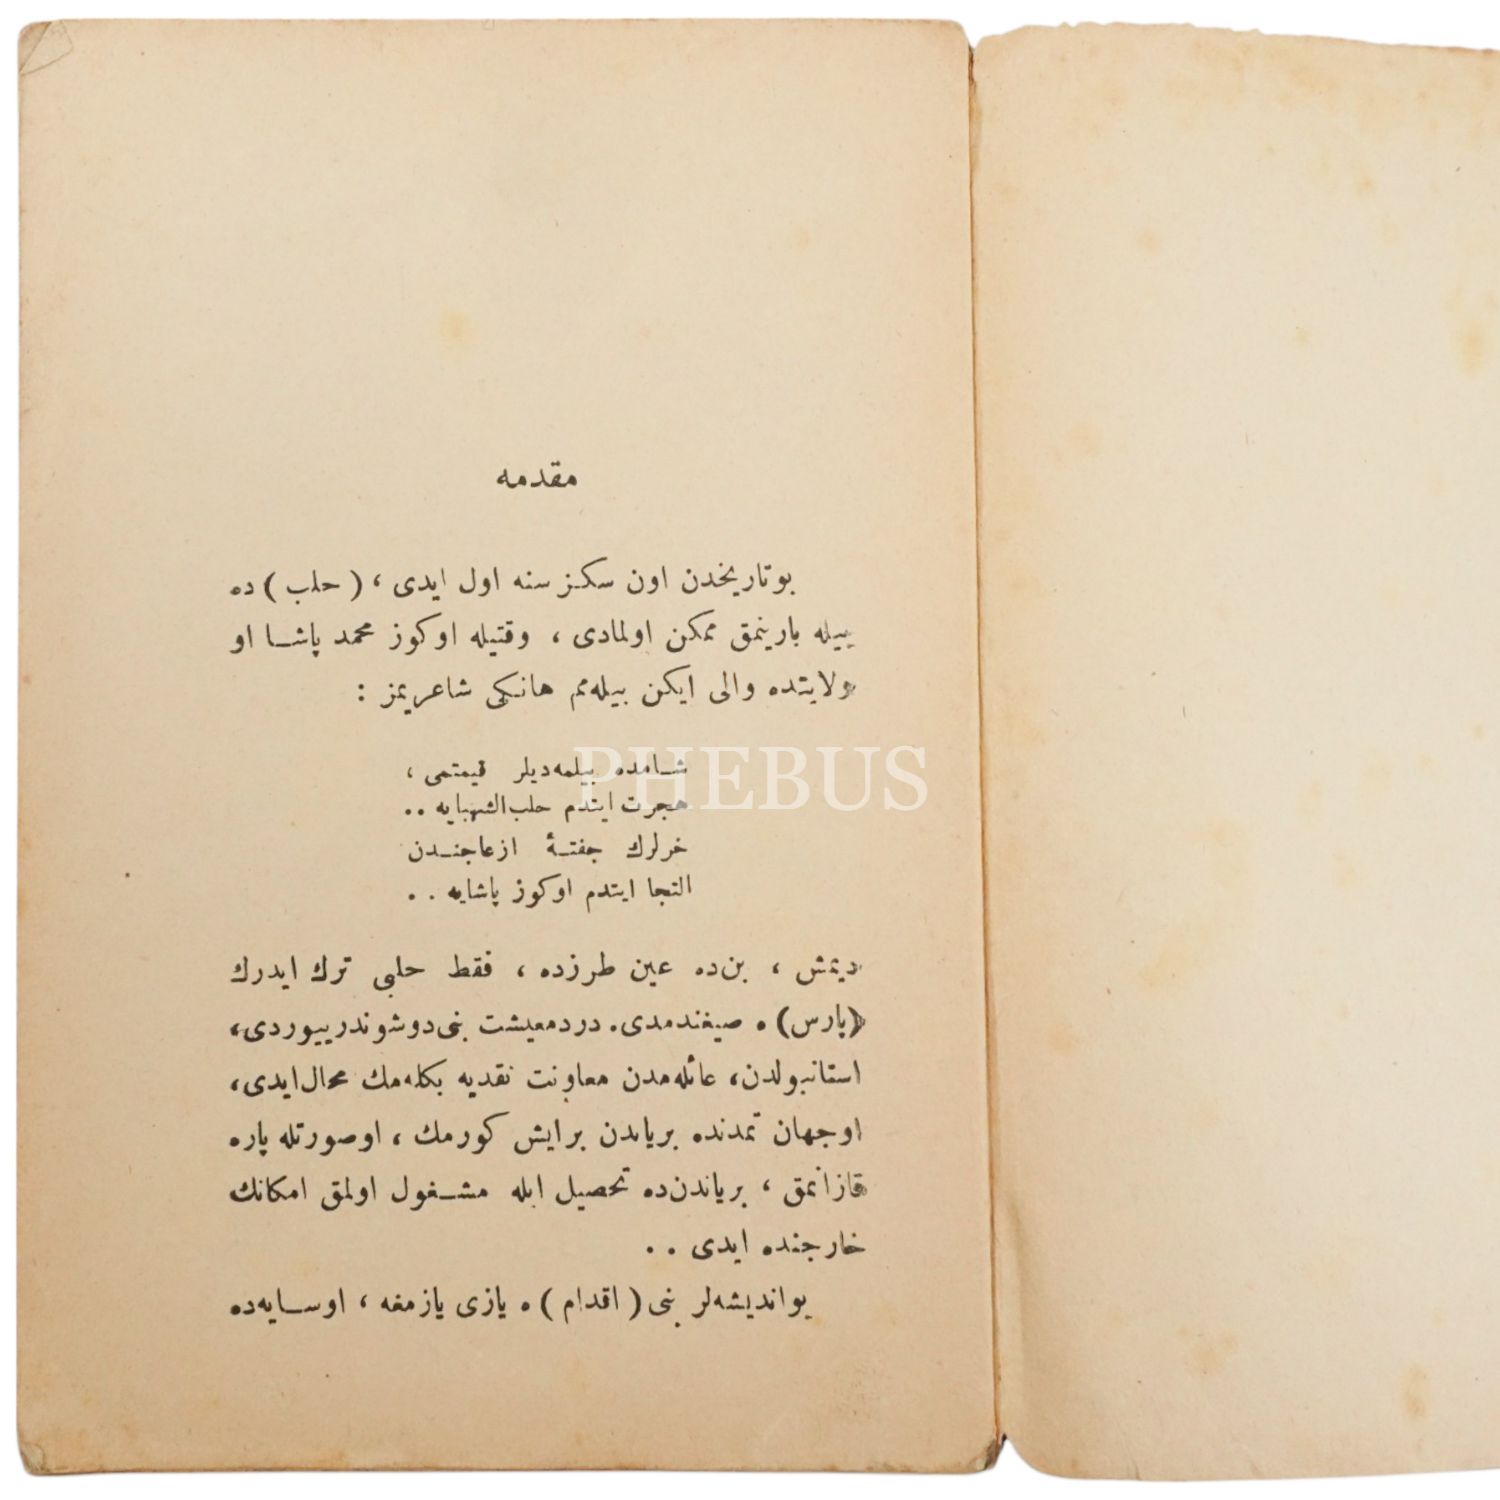 مقدمه
بو تاریخدن اون سكز سنه اول ایدی ، ( حلب ) ده
بیله بارینمق ممكن اولمادی ، وقتیله اوكوز محمد پاشا او
ولایتده والی ایكن بیله‌مم هانكی شاعریمز :
شامده بیلمه‌دیلر قیمتمی ،
هجرت ایتدم حلب الشهبایه ..
خرلرك جفتۀ ازعاجندن
التجا ایتدم اوكوز پاشایه ..
دیمش ، بن‌ده عین طرزده ، فقط حلبی ترك ایدرك
(پارس) ه صیغندمدی . درد معیشت بنی دوشوندرییوردی ،
استانبولدن ، عائله‌مدن معاونت نقدیه بكله‌مك محال ایدی ،
او جهان تمدنده بریاندن برایش كورمك ، اوصورتله پاره
قازانمق ، بریاندن‌ده تحصیل ایله مشغول اولمق امكانك
خارجنده ایدی ..
بو اندیشه‌لر بنی ( اقدام ) ه یازی یازمغه ، اوسایه‌ده
PHEBUS